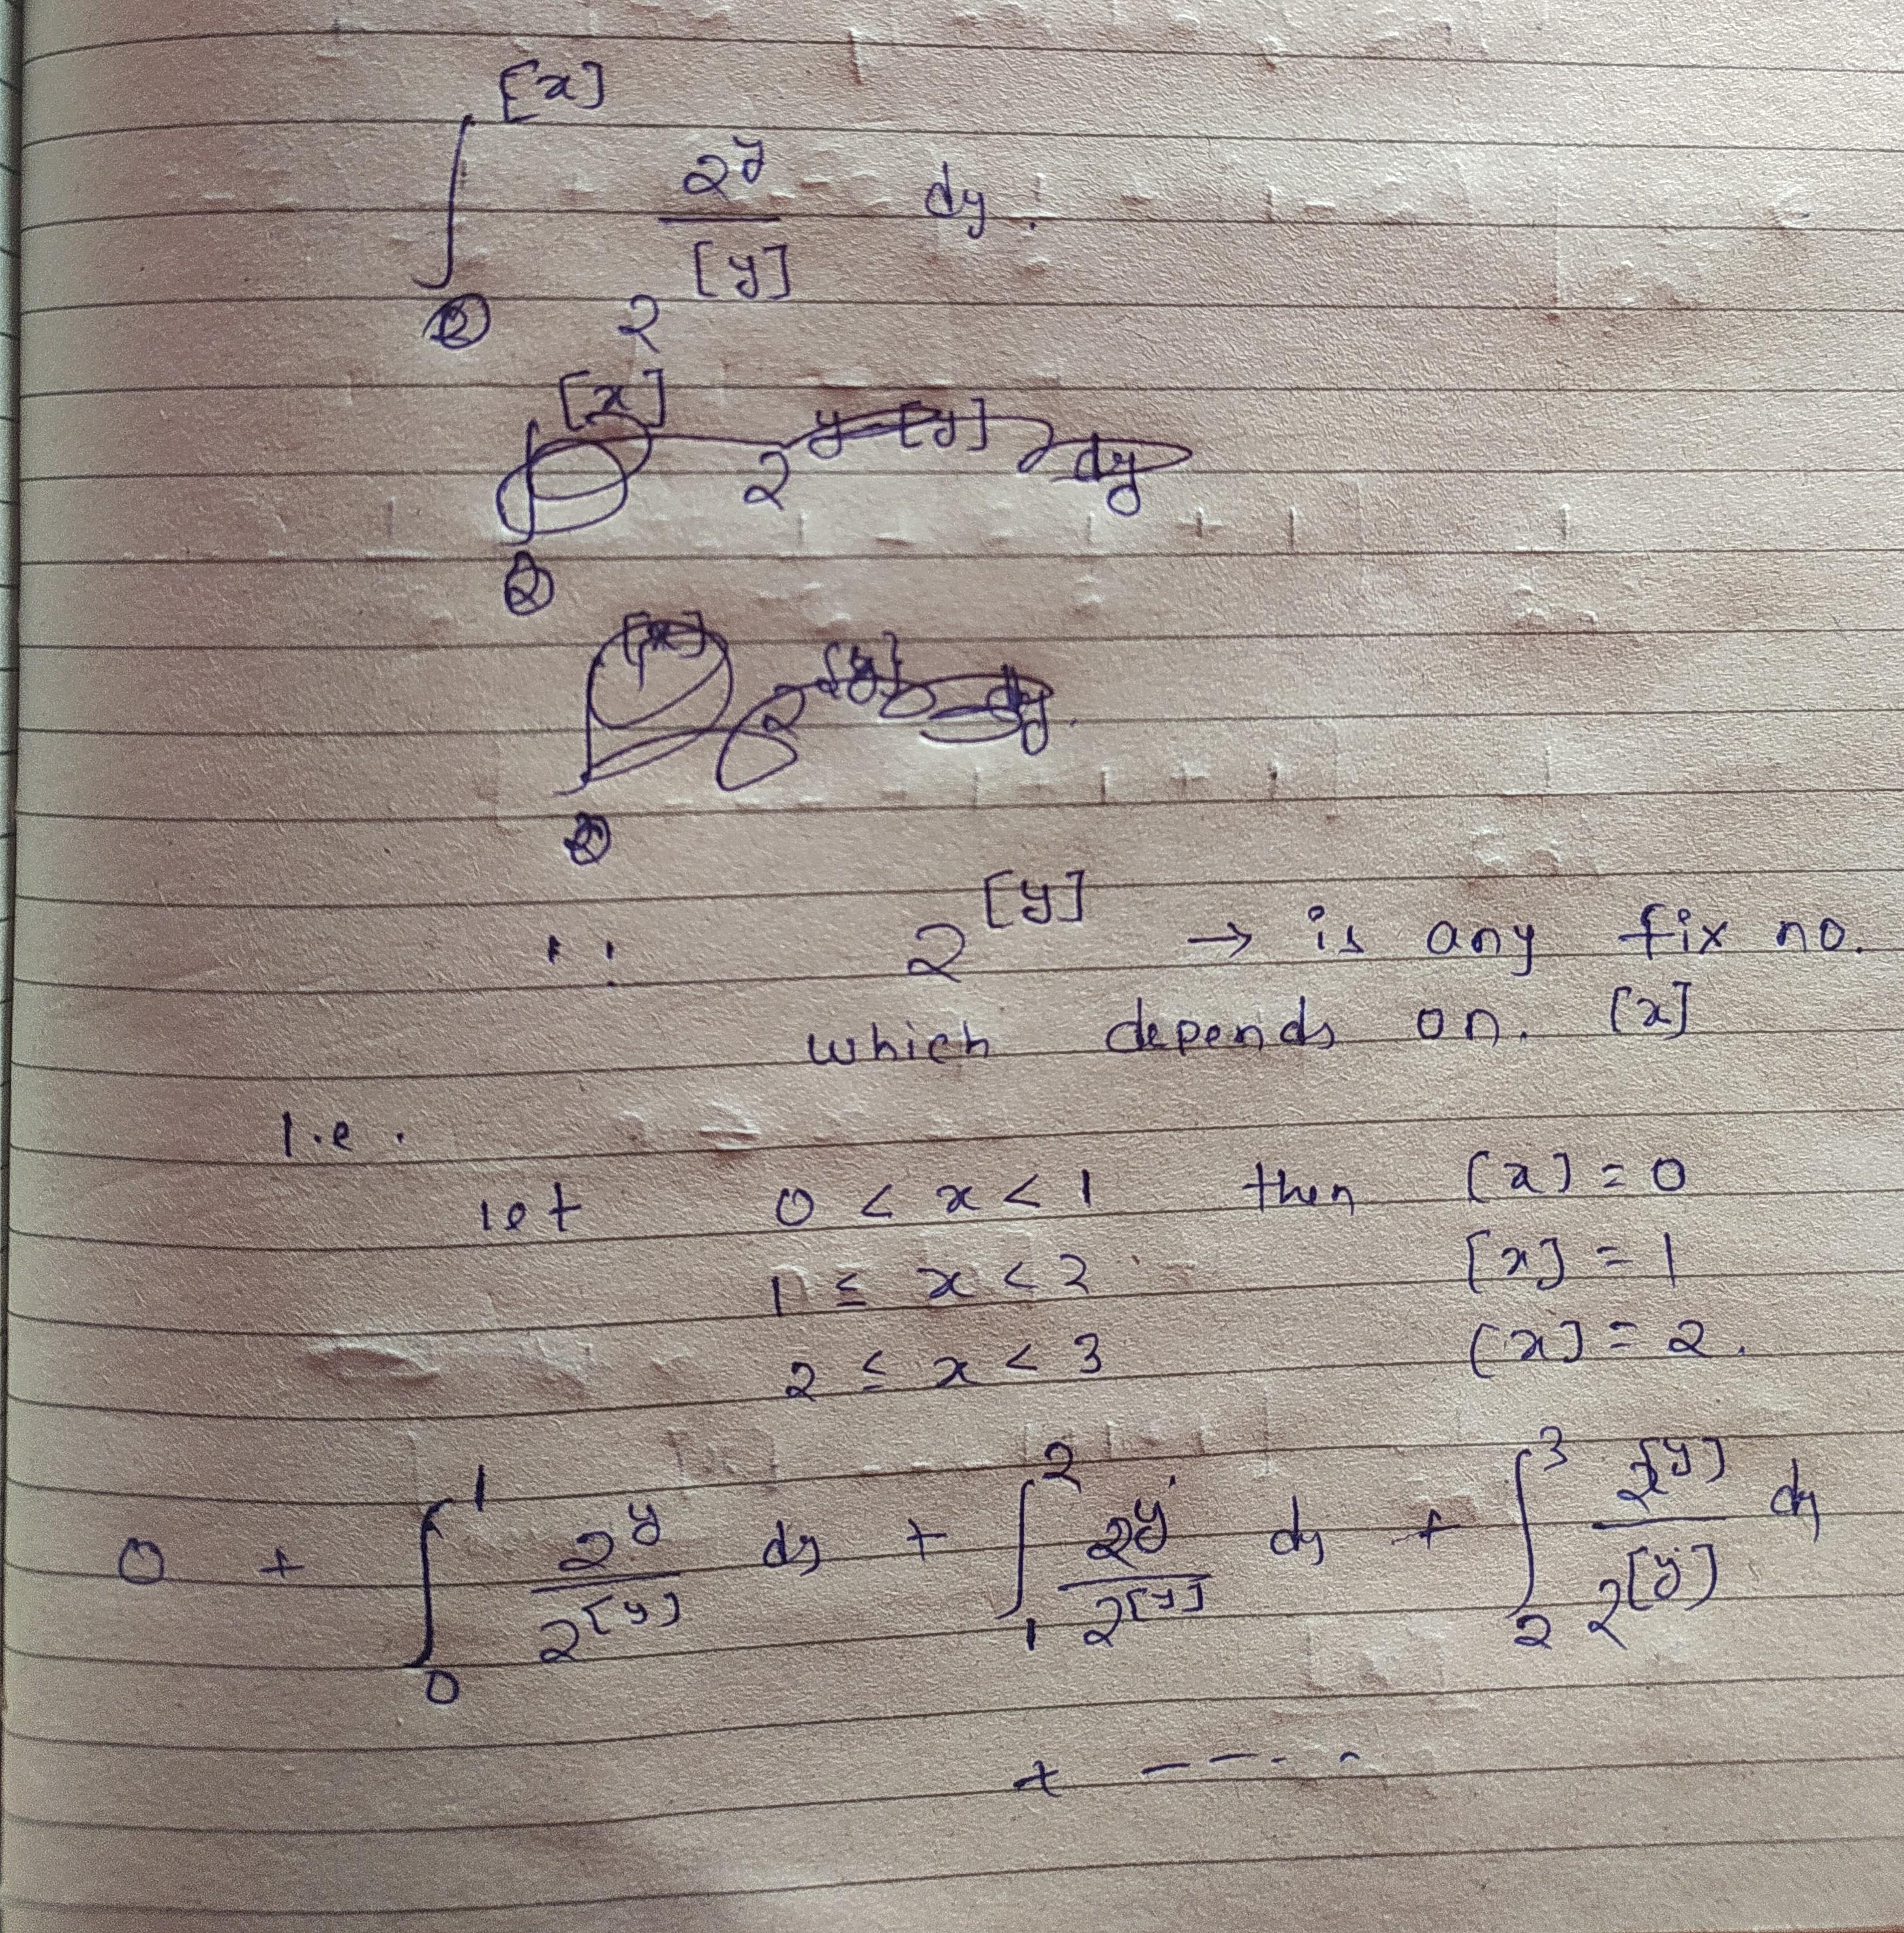 ∫ [x] 2^y / 2^[y] dy.
∫ [x] 2^y-[y] dy
∫ [x] 2^{y} dy.
∵ 2^[y] → is any fix no.
which depends on. [x]
I.e.
let 0 < x < 1 then [x] = 0
1 ≤ x < 2 [x] = 1
2 ≤ x < 3 [x] = 2.
0 + ∫_0^1 2^y / 2^[y] dy + ∫_1^2 2^y / 2^[y] dy + ∫_2^3 / 2^[y] dy
+ - - - -